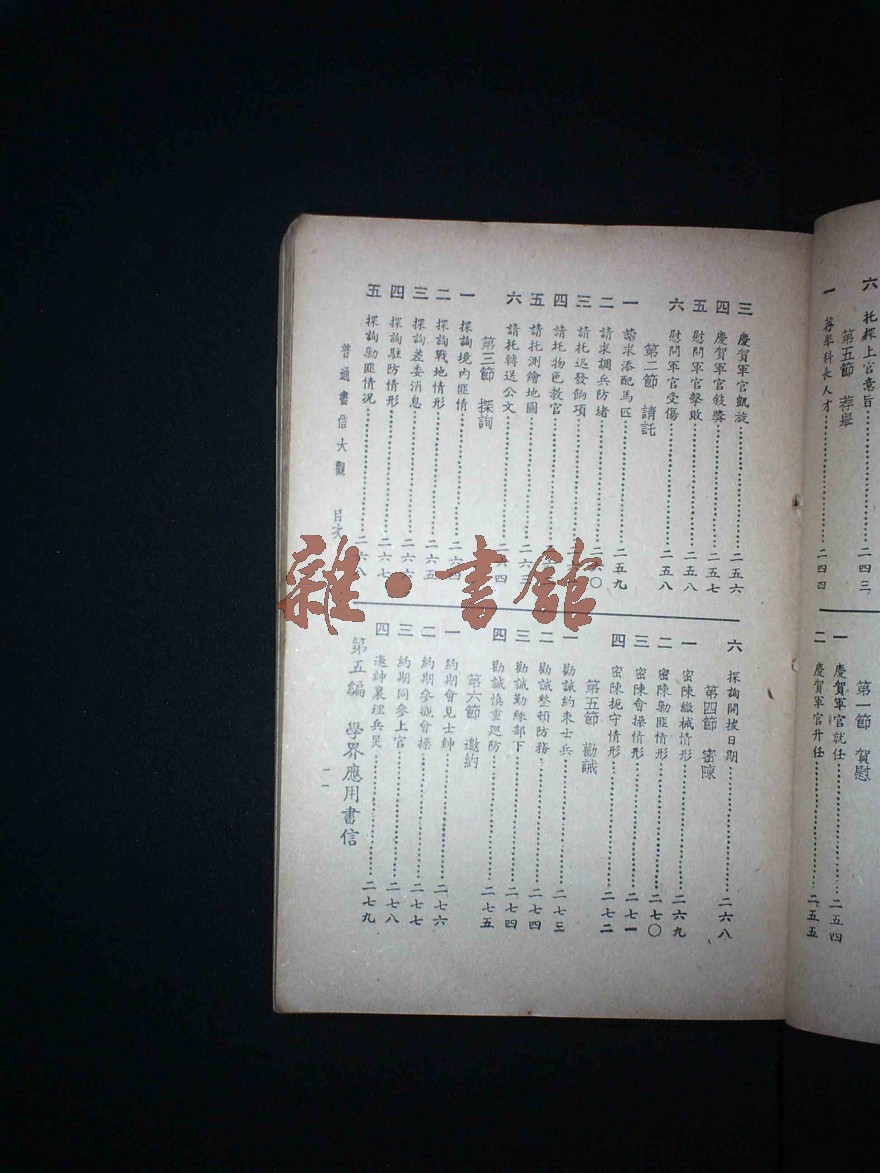 六 托探上官意旨……二四三
第五節 荐舉
一 荐舉科長人才……二四四
第一節 賀慰
一 慶賀軍官就任……二五四
二 慶賀軍官升任……二五五
三 慶賀軍官凱旋……二五六
四 慶賀軍官敍獎……二五七
五 慰問軍官擊敗……二五八
六 慰問軍官受傷……二五八
第二節 請託
一 請求添配馬匹……二五九
二 請求調兵防堵……二六〇
三 請托迅發餉項……
四 請托物色教官……
五 請托測繪地圖……二六三
六 請托轉送公文……二六四
第三節 探詢
一 探詢境內匪情……二六四
二 探詢戰地情形……二六五
三 探詢差委消息……二六六
四 探詢駐防情形……二六七
五 探詢勦匪情況……二六八
六 探詢開拔日期……二六八
第四節 密陳
一 密陳繳械情形……二六九
二 密陳勦匪情形……二七〇
三 密陳會操情形……二七一
四 密陳扼守情形……二七二
第五節 勸誡
一 勸誡約束士兵……二七三
二 勸誡整頓防務……二七四
三 勸誡勤練部下……二七四
四 勸誡慎重巡防……二七五
第六節 邀約
一 約期會見士紳……二七六
二 約期參觀會操……二七七
三 約期同參上官……二七八
四 邀紳襄理兵災……二七九
第五編 學界應用書信
普通書信大觀 目次 一一
雜·書館